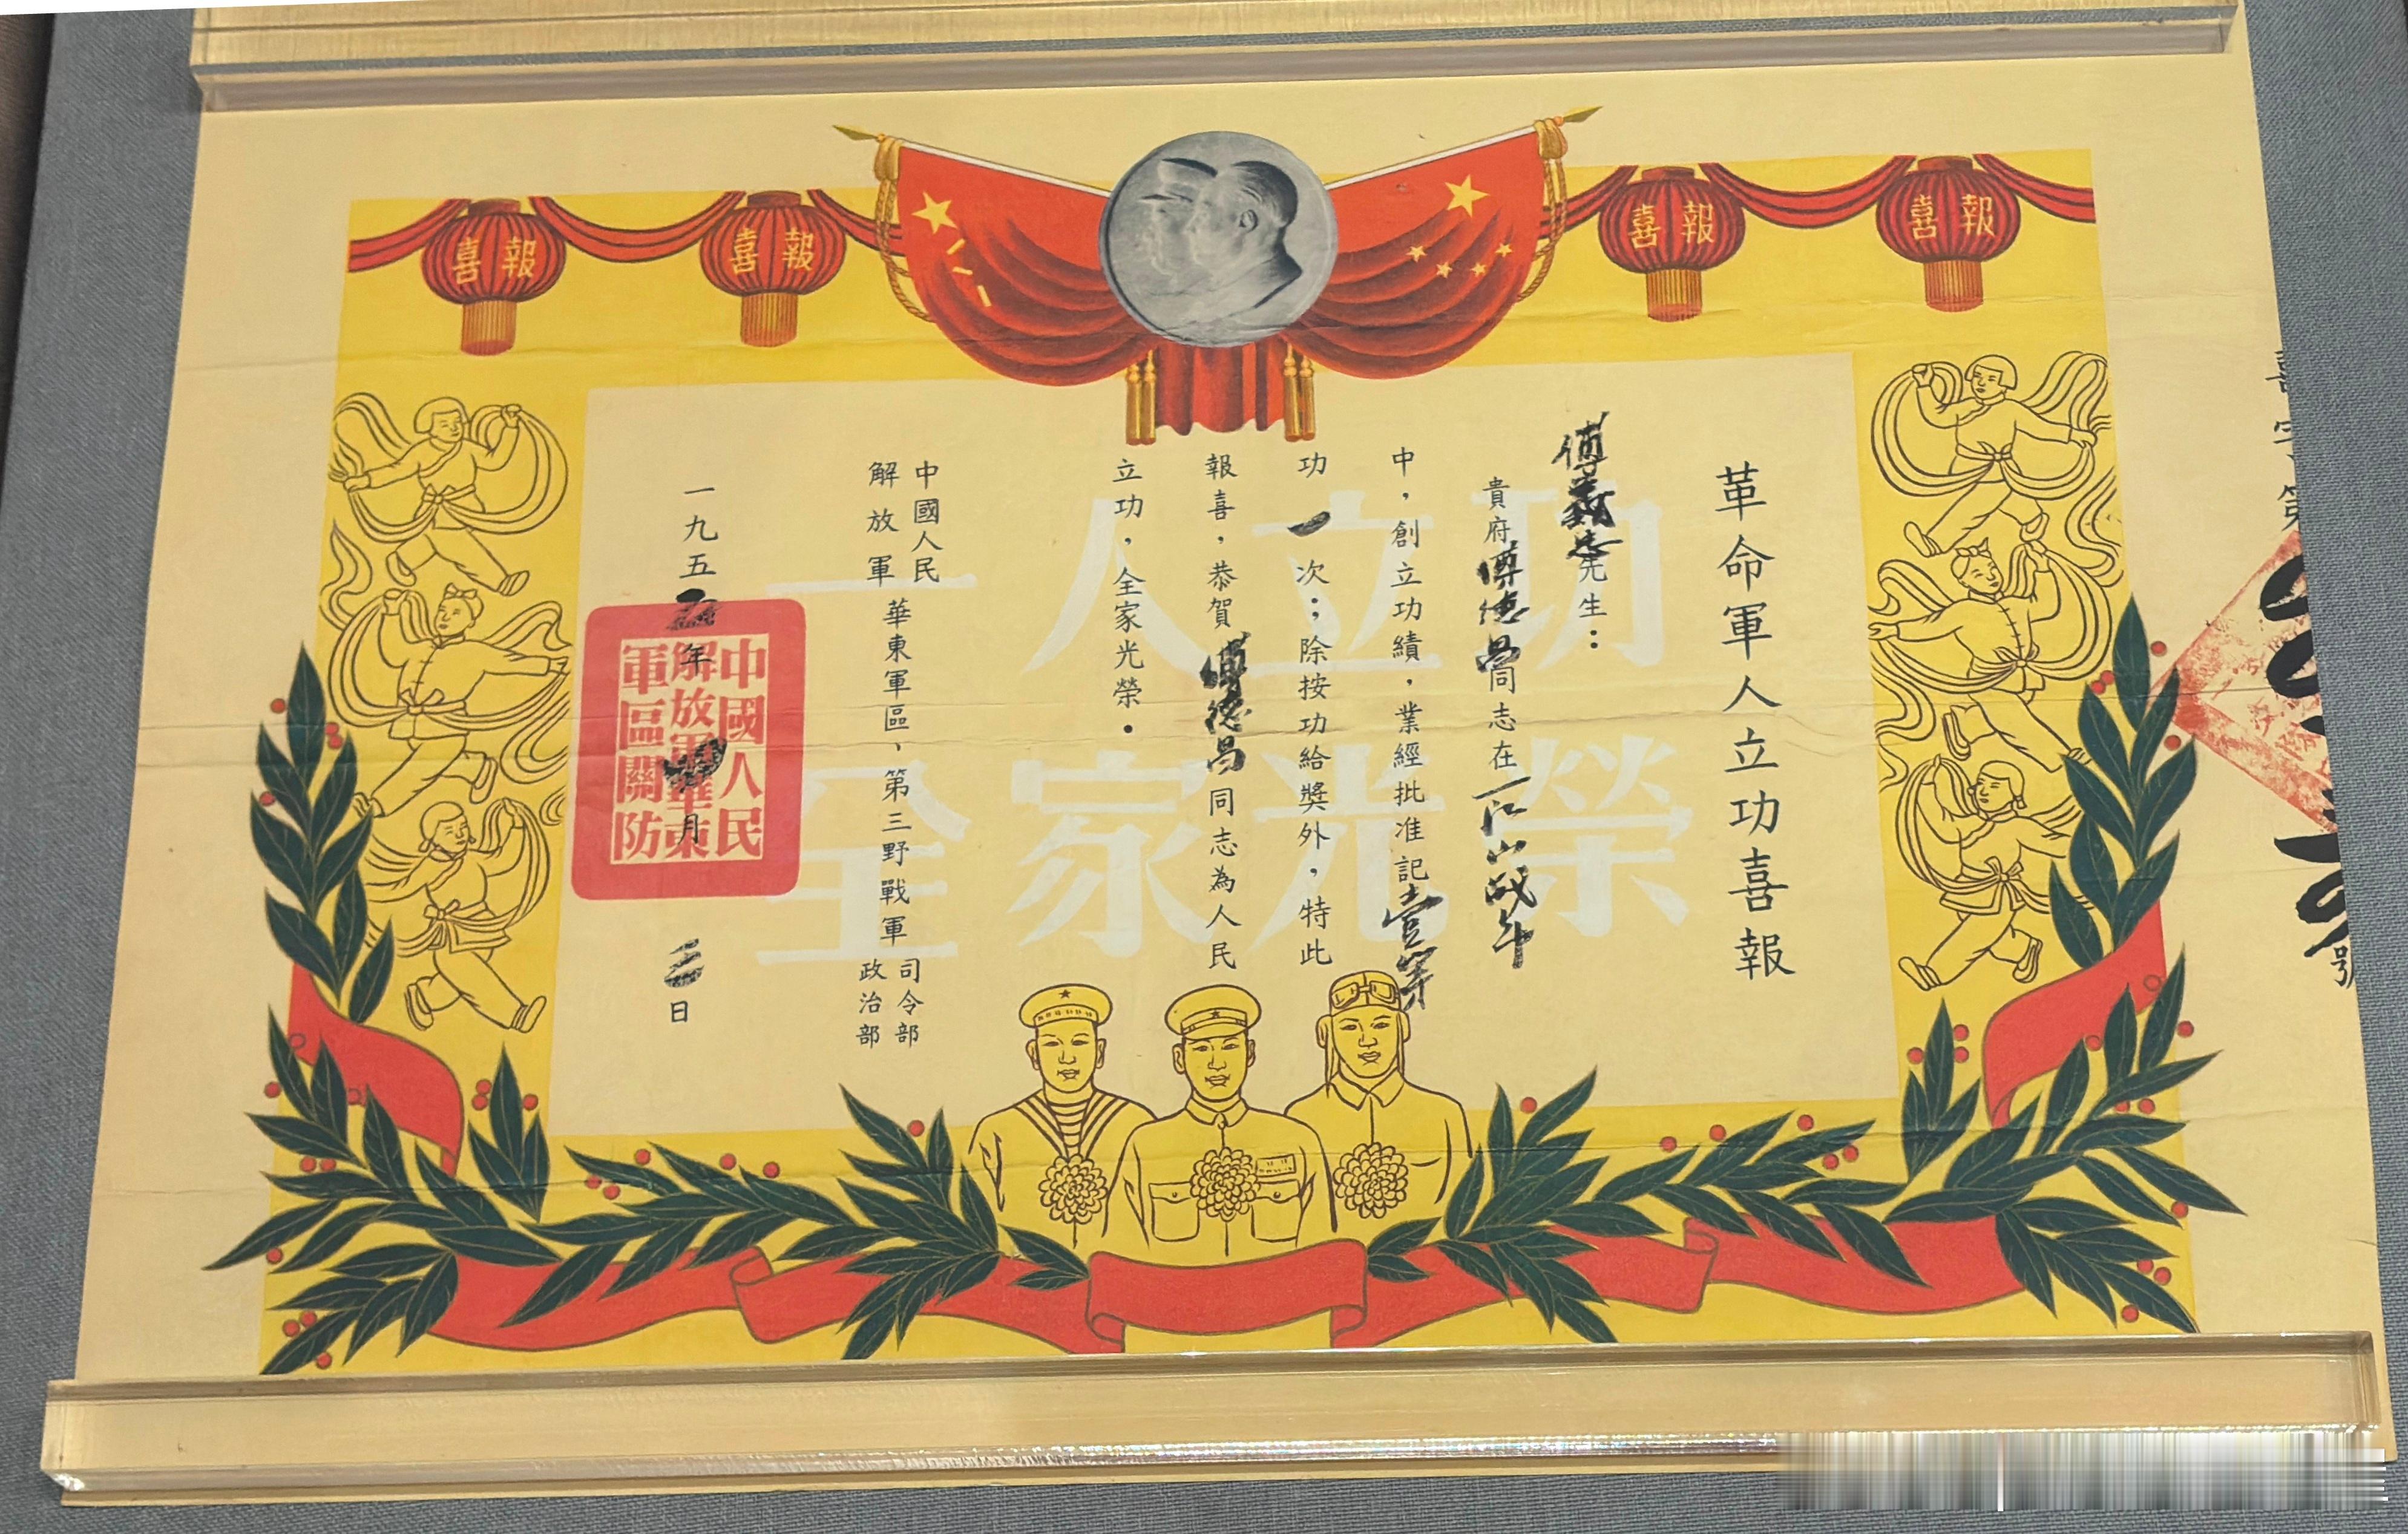 喜報
喜報
喜報
喜報
喜字第 號
革命軍人立功喜報
傅義忠先生：
貴府傅德昌同志在一江山战斗
中，創立功績，業經批准記壹等
功一次；除按功給獎外，特此
報喜，恭賀傅德昌同志為人民
立功，全家光榮．
中國人民
解放軍
華東軍區、第三野戰軍
司令部
政治部
一九五五年 月 日
中國人民
解放軍華東
軍區關防
一人立功
全家光榮